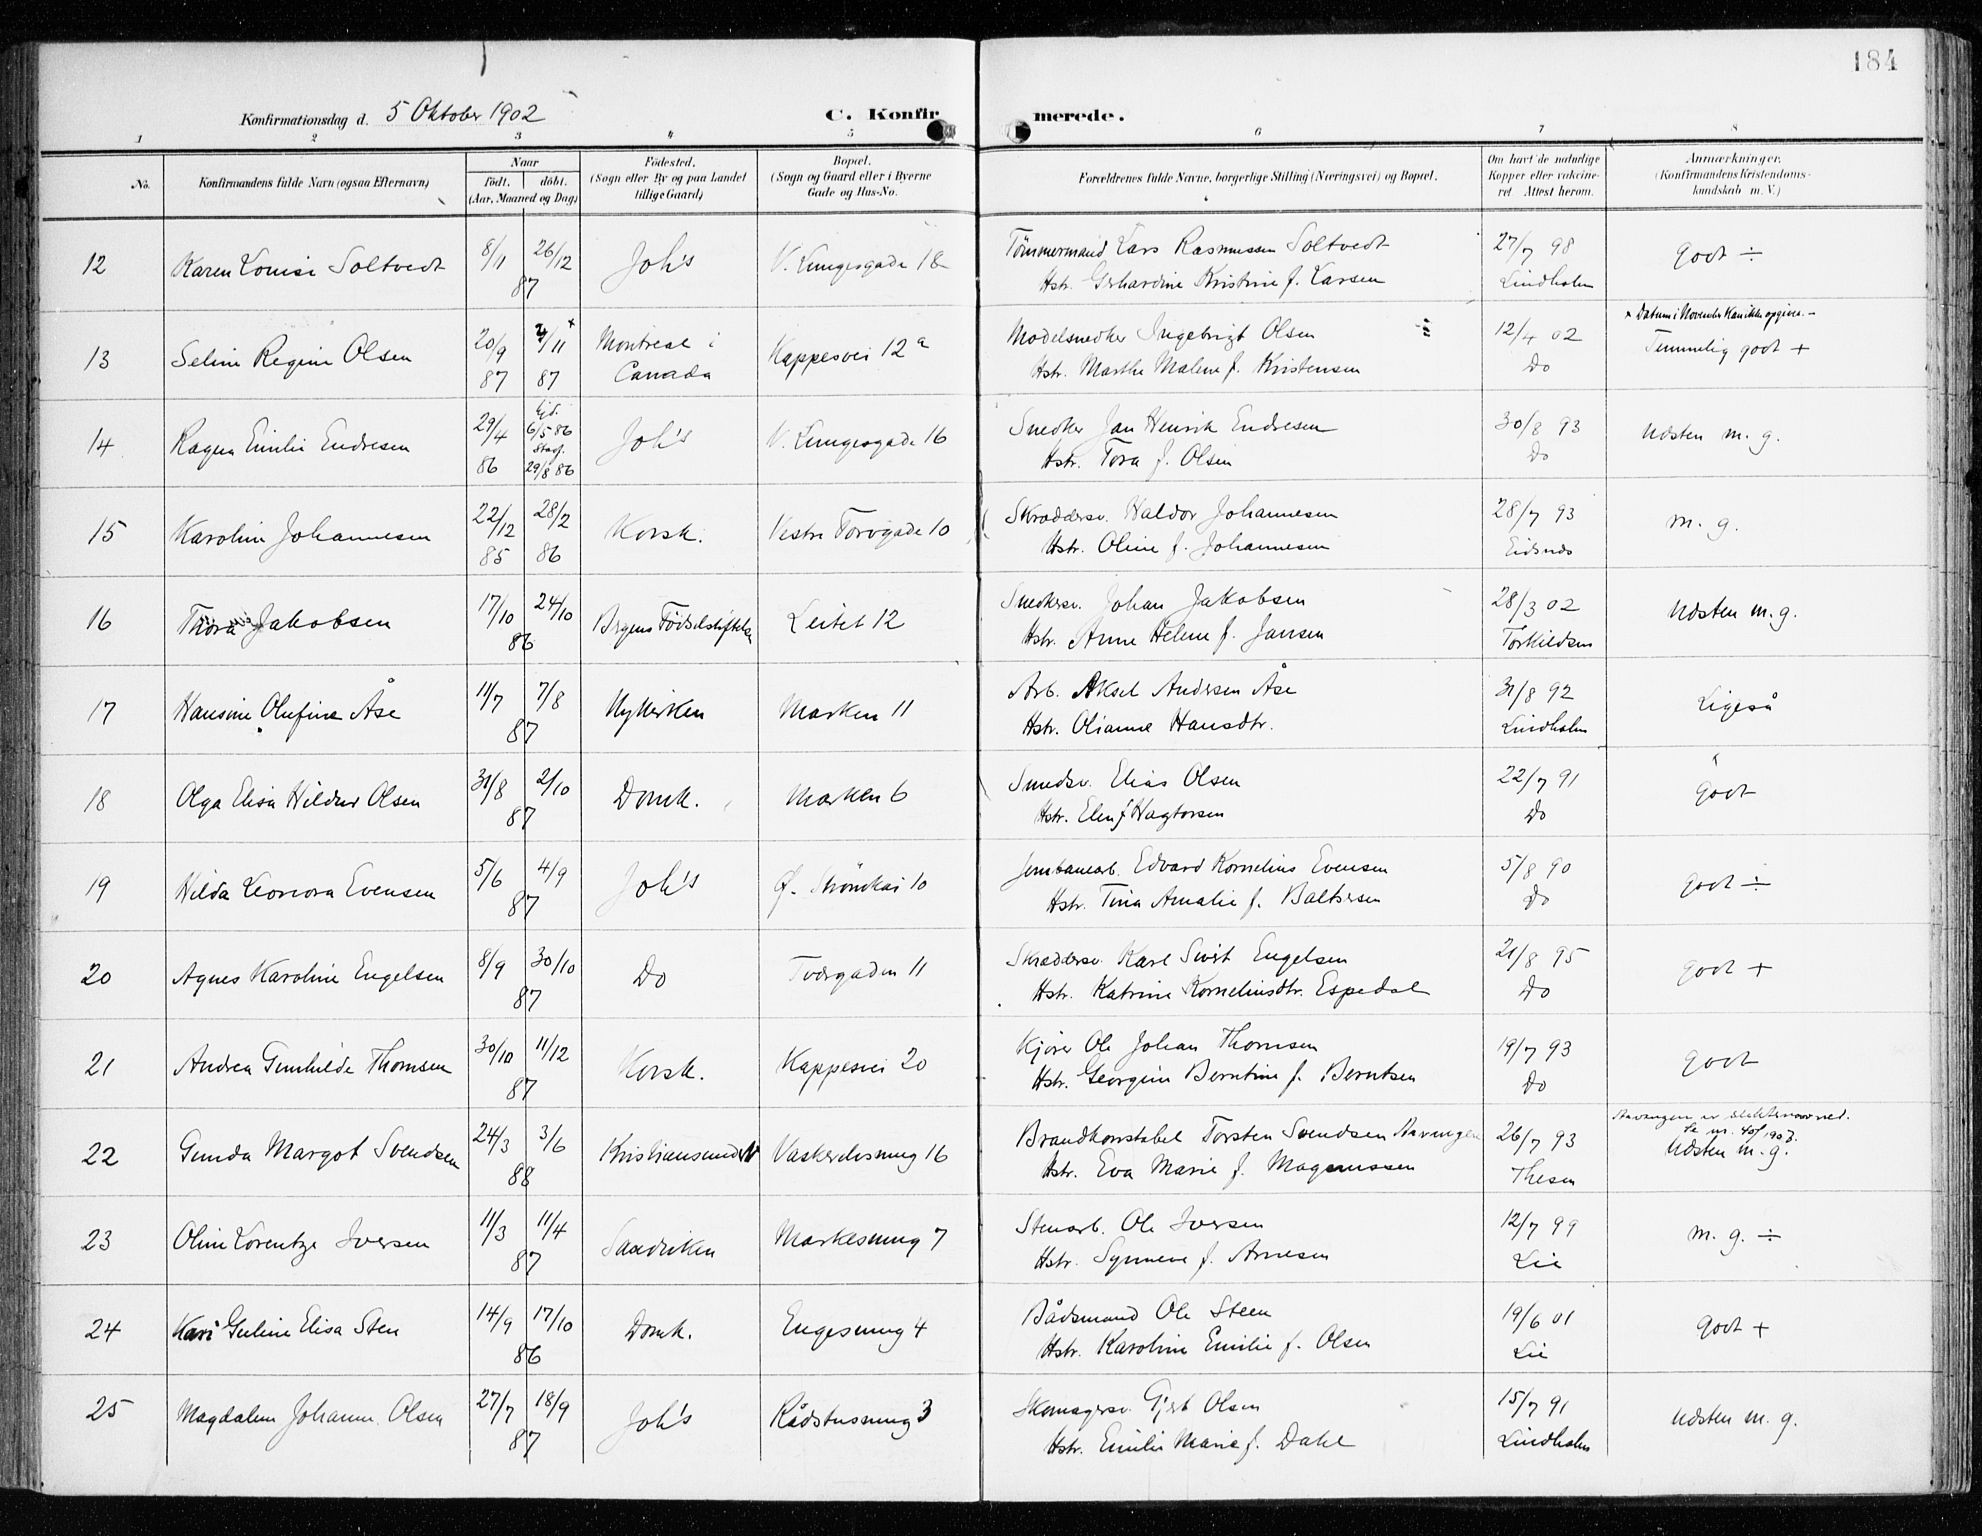 184
Konfirmationsdag d. 5 Oktober 1902 C. Konfirmerede.
1 2 3 4 5 6 7 8
No. Konfirmandens fulde Navn (ogsaa Efternavn) Naar født. døbt. (Aar, Maaned og Dag) Fødested. (Sogn eller By og paa Landet tillige Gaard) Bopæl. (Sogn og Gaard eller i Byerne Gade og Hus-No. Forældrenes fulde Navne, borgerlige Stilling (Næringsvei) og Bopæl. Om havt de naturlige Kopper eller vaccineret. Attest herom. Anmærkninger. (Konfirmandens Kristendomskundskab m. V.)
12 Karen Louise Soltvedt 8/11 26/12 87 Joh's V. Lungesgade 18 Tömmermand Lars Rasmussen Soltvedt 27/7 98 godt ÷
Hstr. Gerhardine Kristine f. Larsen Lindholm
13 Seline Regine Olsen 20/9 87 /11 87 × Montreal i Canada Kappesvei 12a Modelsnedker Ingebrigt Olsen 12/4 02 × Datum i November kan ikke opgives.-
Hstr. Marthe Malene f. Kristensen Do Temmelig godt +
14 Ragna Emilie Endresen 29/4 86 Hjd. 6/5 86 Stadf. 29/8 86 Joh's V. Lungesgade 16 Snedker Jan Henrik Endresen 30/8 93 Næsten m. g.
Hstr. Tora f. Olsen Do
15 Karoline Johannesen 22/12 85 28/2 86 Korsk. Vestre Torvgade 10 Skræddersv. Haldor Johannesen 28/7 93 m. g.
Hstr. Oline f. Johannesen Eidsnes
16 Thora Jakobsen 17/10 24/10 86 Bergens Fødselsstiftelse Leitet 12 Snedkersv. Johan Jakobsen 28/3 02 Næsten m. g.
Hstr. Anne Helene f. Jansen Torkildsen
17 Hansine Olufine Åse 11/7 7/8 87 Nykirken Marken 11 Arb. Aksel Andersen Åse 31/8 92 Ligeså
Hstr. Olianne Hansdtr. Lindholm
18 Olga Elisa Hildur Olsen 31/8 2/10 87 Domk. Marken 6 Smedsv. Elias Olsen 22/7 91 godt
Hstr. Elen f Hagtorsen Do
19 Hilda Leonora Evensen 5/6 4/9 87 Joh's Ø. Strömkai 10 Jernbanearb. Edvard Kornelius Evensen 5/8 90 godt ÷
Hstr. Tina Amalie f. Baltsersen Do
20 Agnes Karoline Engelsen 8/9 30/10 87 Do Tvergaden 11 Skræddersv. Karl Sivert Engelsen 21/8 95 godt +
Hstr. Katrine Korneliusdtr. Espedal Do
21 Andrea Gunhilde Thomsen 30/10 11/12 87 Korsk. Kappesvei 20 Kjører Ole Johan Thomsen 19/7 93 godt
Hstr. Georgine Berntine f. Berntsen Do
22 Gunda Margot Svendsen 24/3 3/6 88 Kristiansund N Vaskerelvsmug 16 Brandkonstabel Torsten Svendsen Aavangen 26/7 93 Aavangen er slektsnavnet. Se nr. 401/1903.
Hstr. Eva Marie f. Magnussen Thesen Næsten m. g.
23 Oline Lorentze Iversen 11/3 11/4 87 Sandviken Markesmug 7 Stenarb. Ole Iversen 12/7 99 m. g. ÷
Hstr. Synneve f. Arnesen Lie
24 Kari Guline Elisa Sten 14/9 17/10 86 Domk. Engesmug 4 Bådsmand Ole Steen 19/6 01 godt +
Hstr. Karoline Emilie f. Olsen Lie
25 Magdalene Johanne Olsen 27/7 18/9 87 Joh's Rådstusmug 3 Skomagersv. Gjert Olsen 15/7 91 Næsten m. g.
Hstr. Emilie Marie f. Dahl Lindholm